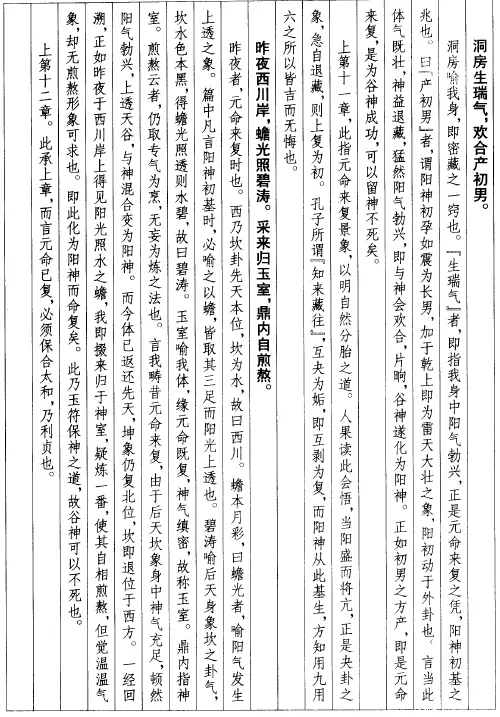 洞房生瑞气，欢合产初男。
洞房喻我身，即密藏之一窍也。『生瑞气』者，即指我身中阳气勃兴，正是元命来复之凭，阳神初基之
兆也。曰『产初男』者，谓阳神初孕如震为长男，加于乾上即为雷天大壮之象，阳初动于外卦也。言当此
体气既壮，神益退藏，猛然阳气勃兴，即与神会欢合，片晌，谷神遂化为阳神。正如初男之方产，即是元命
来复，是为谷神成功，可以留神不死矣。
上第十一章，此指元命来复景象，以明自然分胎之道。人果读此会悟，当阳盛而将亢，正是夬卦之
象，急自退藏，则上复为初。孔子所谓『知来藏往』，互夬为姤，即互剥为复，而阳神从此基生，方知用九用
六之所以皆吉而无悔也。
昨夜西川岸，蟾光照碧涛。采来归玉室，鼎内自煎熬。
昨夜者，元命来复时也。西乃坎卦先天本位，坎为水，故曰西川。蟾本月彩，曰蟾光者，喻阳气发生
上透之象。篇中凡言阳神初基时，必喻之以蟾，皆取其三足而阳光上透也。碧涛喻后天身象坎之卦气，
坎水色本黑，得蟾光照透则水碧，故曰碧涛。玉室喻我体，缘元命既复，神气缜密，故称玉室。鼎内指神
室。煎熬云者，仍取专气为烹，无妄为炼之法也。言我畴昔元命来复，由于后天坎象身中神气充足，顿然
阳气勃兴，上透天谷，与神混合变为阳神。而今体已返还先天，坤象仍复北位，坎即退位于西方。一经回
溯，正如昨夜于西川岸上得见阳光照水之蟾，我即掇来归于神室，疑炼一番，使其自相煎熬，但觉温温气
象，却无煎熬形象可求也。即此化为阳神而命复矣。此乃玉符保神之道，故谷神可以不死也。
上第十二章。此承上章，而言元命已复，必须保合太和，乃利贞也。